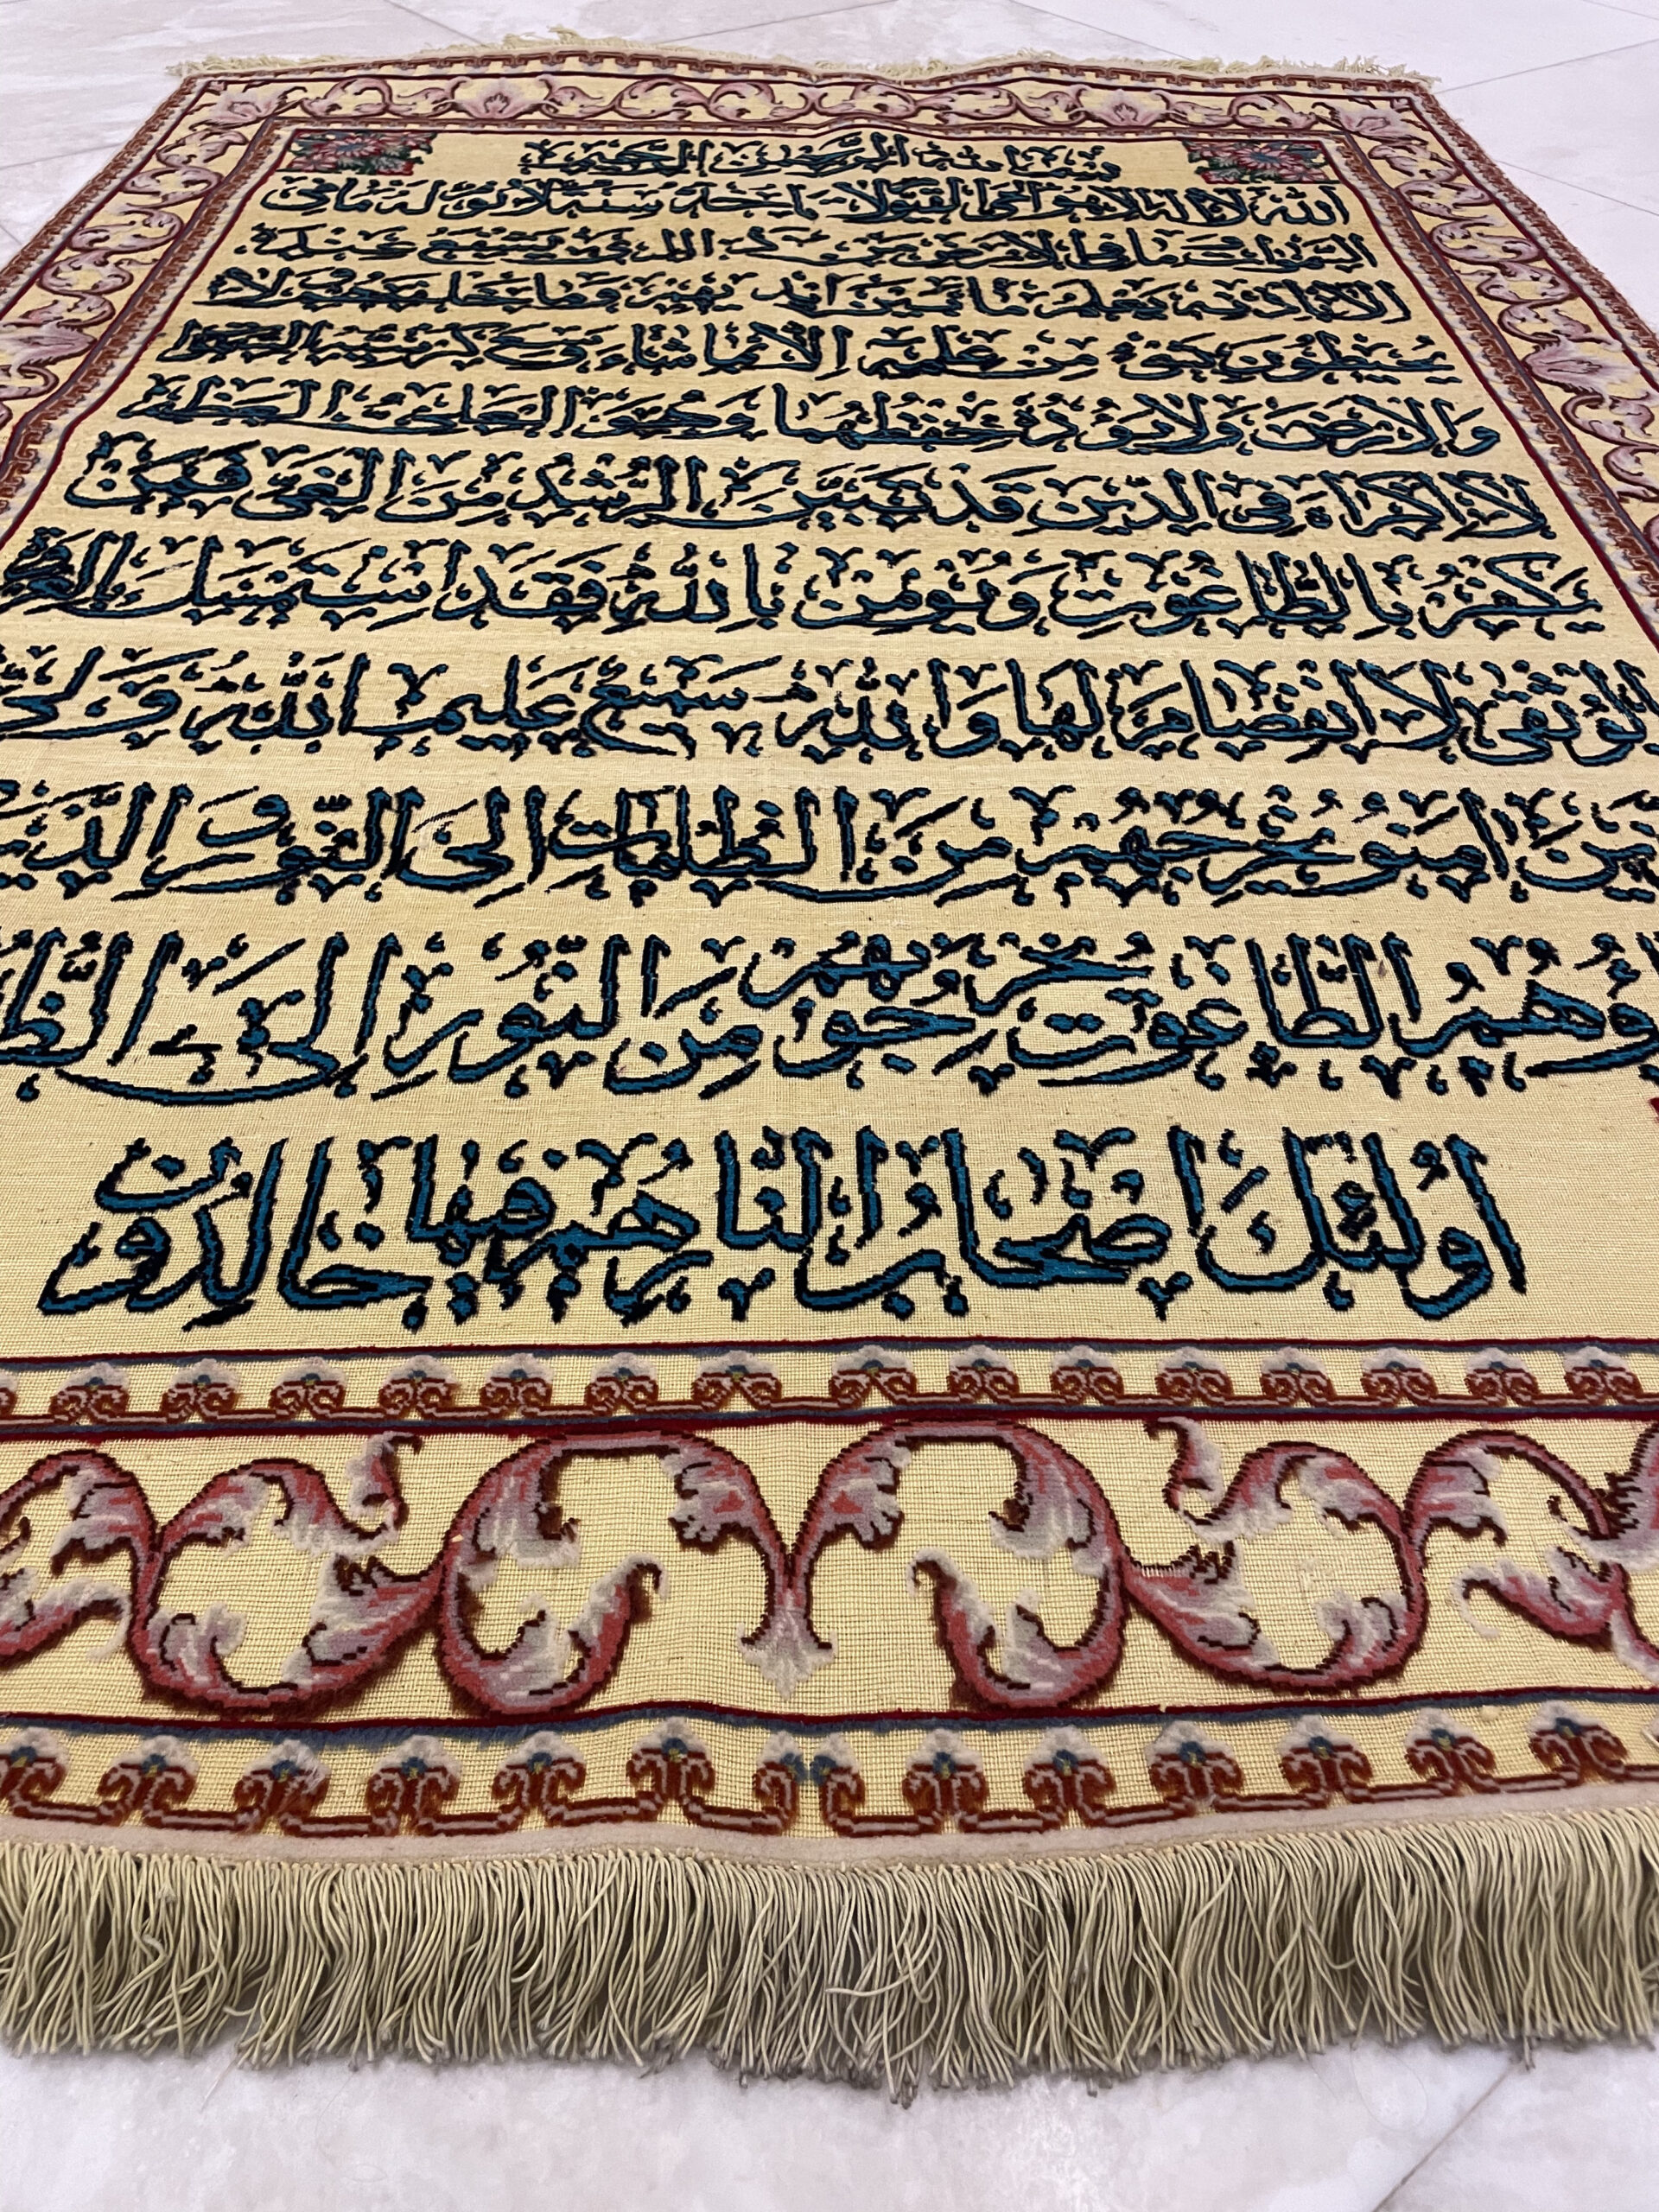 بسم الله الرحمن الرحیم
الله لا اله الا هو الحی القیوم لا تاخذه سنة ولا نوم له ما فی
السموات وما فی الارض من ذا الذی یشفع عنده
الا باذنه یعلم ما بین ایدیهم وما خلفهم ولا
یحیطون بشیء من علمه الا بما شاء وسع کرسیه السموات
والارض ولا یؤده حفظهما وهو العلی العظیم
لا اکراه فی الدین قد تبین الرشد من الغی فمن
یکفر بالطاغوت ویومن بالله فقد استمسک بالعروة
الوثقی لا انفصام لها والله سمیع علیم الله ولی
ین امنو یخرجهم من الظلمات الی النور والذین
وهم الطاغوت یخرجونهم من النور الی الظ
اولئک اصحاب النار هم فیها خالدون